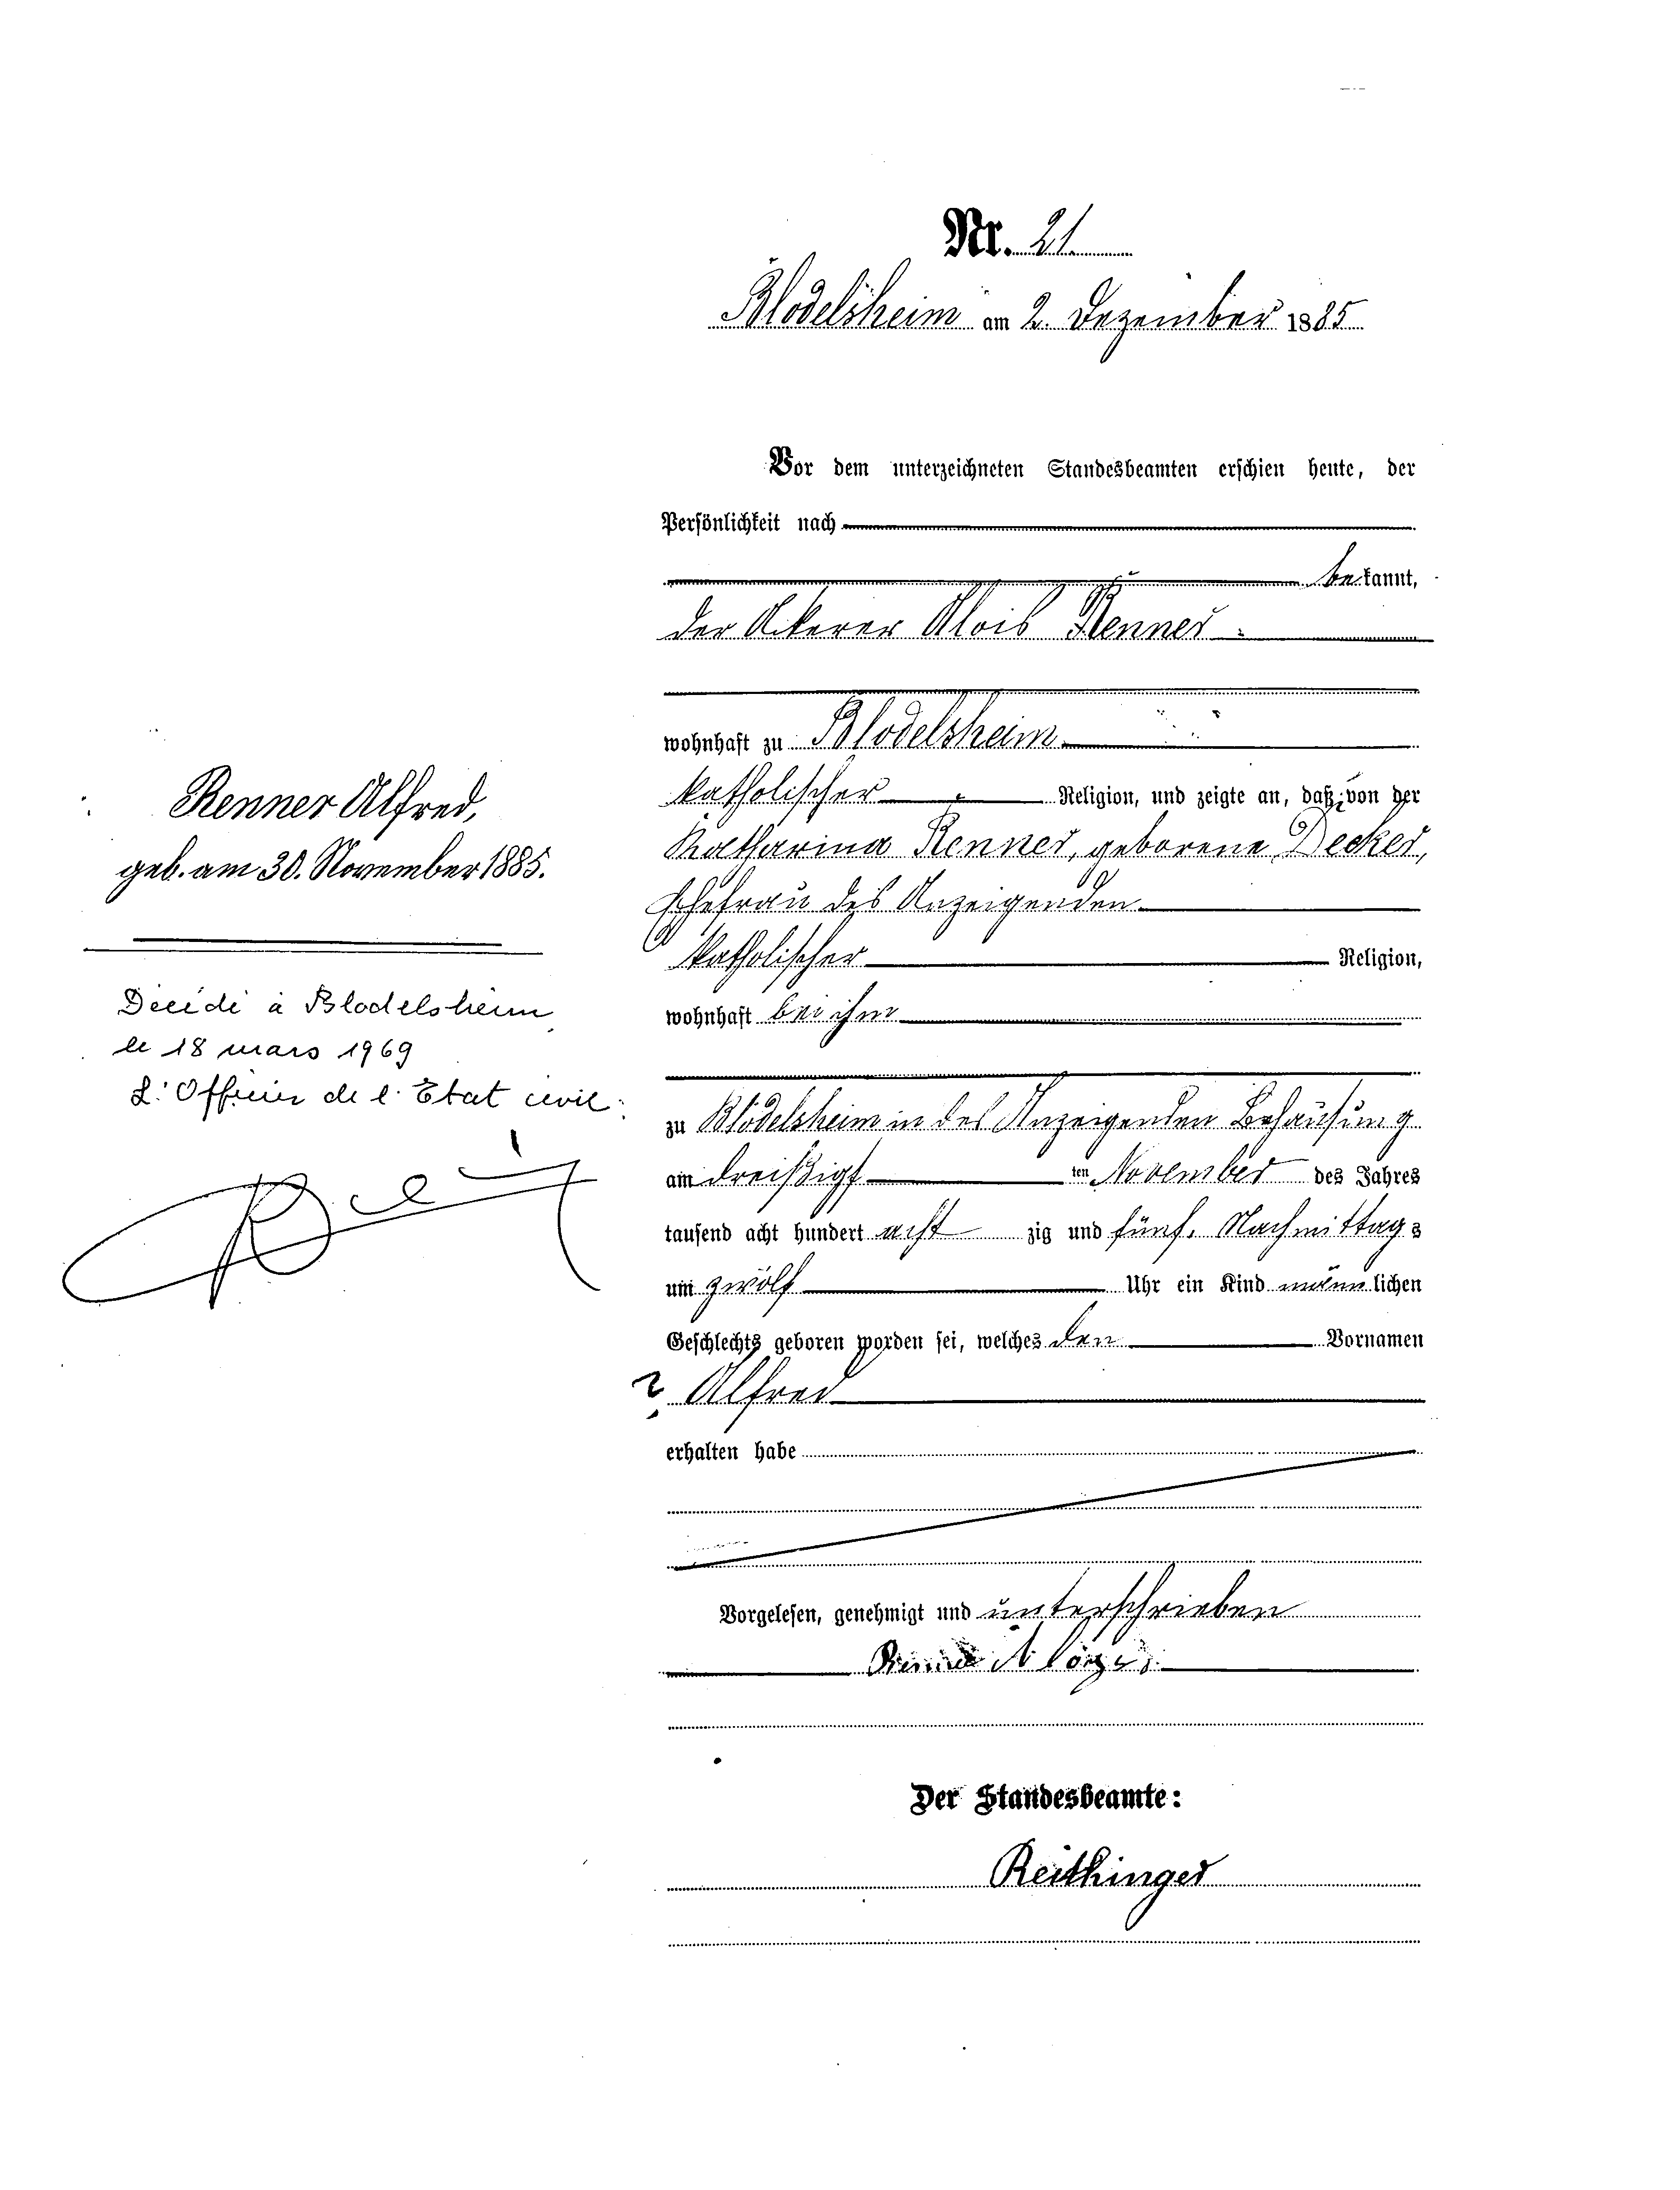 Nr. 21
Blodelsheim am 2. Dezember 1885
Vor dem unterzeichneten Standesbeamten erschien heute, der
Persönlichkeit nach
bekannt,
der Ackerer Alois Renner
wohnhaft zu Blodelsheim
katholischer Religion, und zeigte an, daß von der
Katharina Renner, geborene Decker,
Ehefrau des Anzeigenden
katholischer Religion,
wohnhaft bei ihm
zu Blodelsheim in des Anzeigenden Behausung
am dreißigsten November des Jahres
tausend acht hundert acht zig und fünf, Nachmittags
um zwölf Uhr ein Kind männlichen
Geschlechts geboren worden sei, welches den Vornamen
Alfred
erhalten habe
Vorgelesen, genehmigt und unterschrieben
Der Standesbeamte:
Reithinger
Renner Alfred,
geb. am 30. November 1885.
Décédé à Blodelsheim
le 18 mars 1969
L'Officier de l'Etat civil: